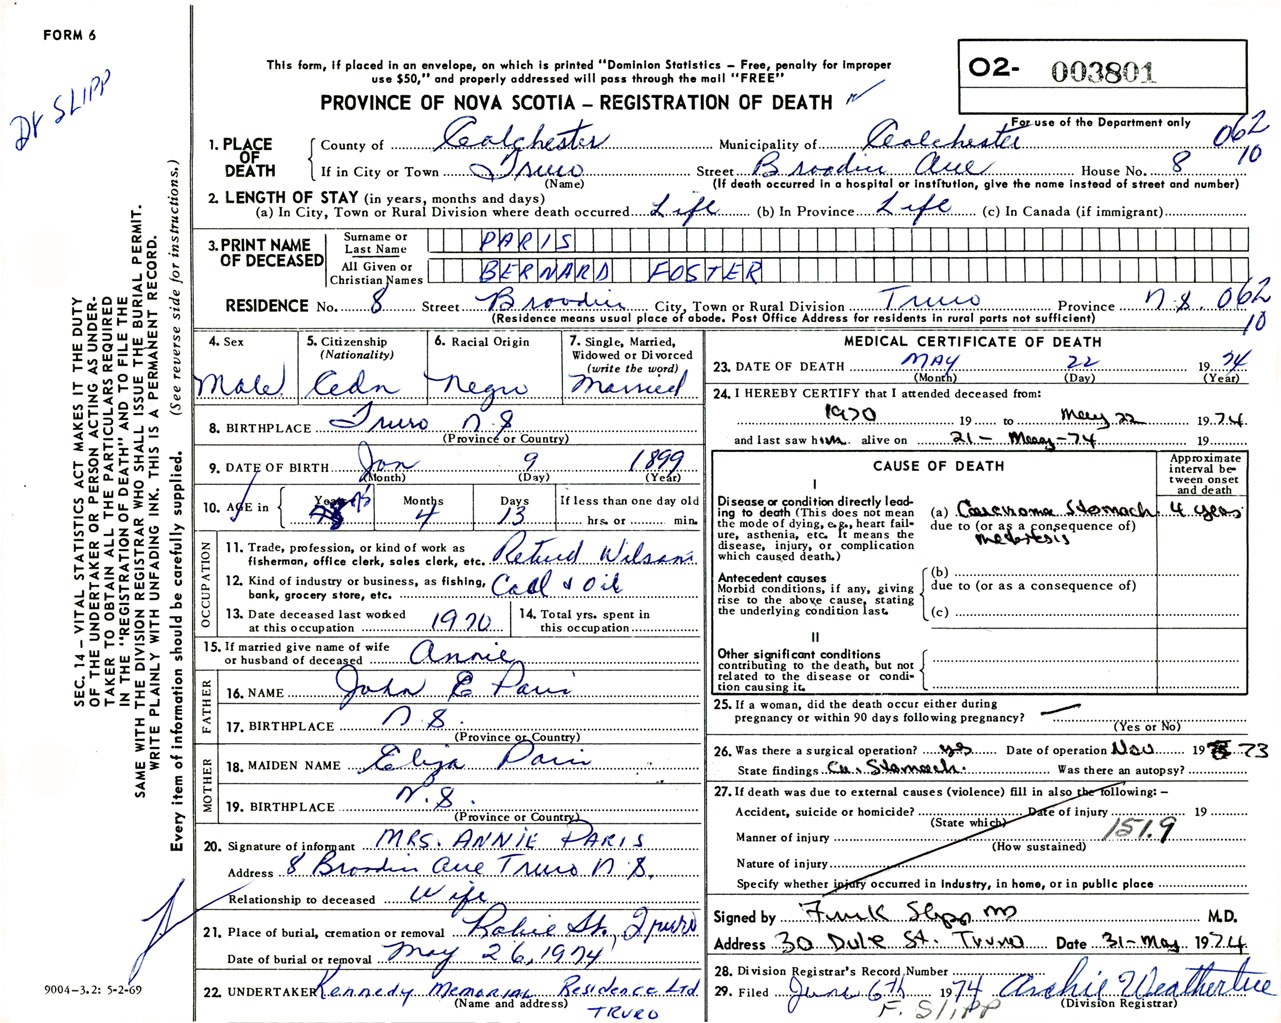 FORM 6
Dr SLIPP
This form, if placed in an envelope, on which is printed "Dominion Statistics – Free, penalty for improper
use $50," and properly addressed will pass through the mail "FREE"
PROVINCE OF NOVA SCOTIA – REGISTRATION OF DEATH
O2- 003801
For use of the Department only
062
10
1. PLACE OF DEATH
County of Colchester Municipality of Colchester
If in City or Town Truro Street Brookin Ave House No. 8
(Name) (If death occurred in a hospital or institution, give the name instead of street and number)
2. LENGTH OF STAY (in years, months and days)
(a) In City, Town or Rural Division where death occurred Life (b) In Province Life (c) In Canada (if immigrant)
3. PRINT NAME OF DECEASED
Surname or Last Name PARIS
All Given or Christian Names BERNARD FOSTER
RESIDENCE No. 8 Street City, Town or Rural Division Truro Province N.S. 062
(Residence means usual place of abode. Post Office Address for residents in rural parts not sufficient)
10
4. Sex Male
5. Citizenship (Nationality) Cdn
6. Racial Origin Negro
7. Single, Married, Widowed or Divorced (write the word) Married
8. BIRTHPLACE Truro N S
(Province or Country)
9. DATE OF BIRTH Jan 9 1899
(Month) (Day) (Year)
10. AGE in Years 75 Months 4 Days 13 If less than one day old
hrs. or min.
OCCUPATION
11. Trade, profession, or kind of work as
fisherman, office clerk, sales clerk, etc. Retired Wilsons
12. Kind of industry or business, as fishing,
bank, grocery store, etc. Coal & Oil
13. Date deceased last worked
at this occupation 1970
14. Total yrs. spent in
this occupation
15. If married give name of wife
or husband of deceased Annie
FATHER
16. NAME John E Paris
17. BIRTHPLACE N.S.
(Province or Country)
MOTHER
18. MAIDEN NAME Eliza Paris
19. BIRTHPLACE N.S.
(Province or Country)
20. Signature of informant MRS. ANNIE PARIS
Address 8 Ave Truro N.S.
Relationship to deceased Wife
21. Place of burial, cremation or removal Robie St., Truro
Date of burial or removal May 26, 1974
22. UNDERTAKER Kennedy Memorial Residence Ltd
(Name and address) TRURO
MEDICAL CERTIFICATE OF DEATH
23. DATE OF DEATH MAY 22 19 74
(Month) (Day) (Year)
24. I HEREBY CERTIFY that I attended deceased from:
1970 19 to May 22 19 74
and last saw him alive on 21 - May - 74 19
CAUSE OF DEATH
Approximate interval between onset and death
I
Disease or condition directly leading to death (This does not mean the mode of dying, e.g., heart failure, asthenia, etc. It means the disease, injury, or complication which caused death.)
(a) Carcinoma Stomach 4 years
due to (or as a consequence of)
Antecedent causes
Morbid conditions, if any, giving rise to the above cause, stating the underlying condition last.
(b)
due to (or as a consequence of)
(c)
II
Other significant conditions
contributing to the death, but not related to the disease or condition causing it.
25. If a woman, did the death occur either during
pregnancy or within 90 days following pregnancy?
(Yes or No)
26. Was there a surgical operation? yes Date of operation Nov 19 73
State findings Ca. Stomach. Was there an autopsy?
27. If death was due to external causes (violence) fill in also the following: –
Accident, suicide or homicide? Date of injury 19
(State which)
Manner of injury 151.9
(How sustained)
Nature of injury
Specify whether injury occurred in Industry, in home, or in public place
Signed by Frank Slipp MD M.D.
Address 30 Duke St. Truro Date 31-May 1974
28. Division Registrar's Record Number
29. Filed June 6th 1974 Archie Weatherbee
(Division Registrar)
F. SLIPP
SEC. 14 – VITAL STATISTICS ACT MAKES IT THE DUTY
OF THE UNDERTAKER OR PERSON ACTING AS UNDER-
TAKER TO OBTAIN ALL THE PARTICULARS REQUIRED
IN THE "REGISTRATION OF DEATH" AND TO FILE THE
SAME WITH THE DIVISION REGISTRAR WHO SHALL ISSUE THE BURIAL PERMIT.
WRITE PLAINLY WITH UNFADING INK. THIS IS A PERMANENT RECORD.
Every item of information should be carefully supplied. (See reverse side for instructions.)
9004-3.2: 5-2-69